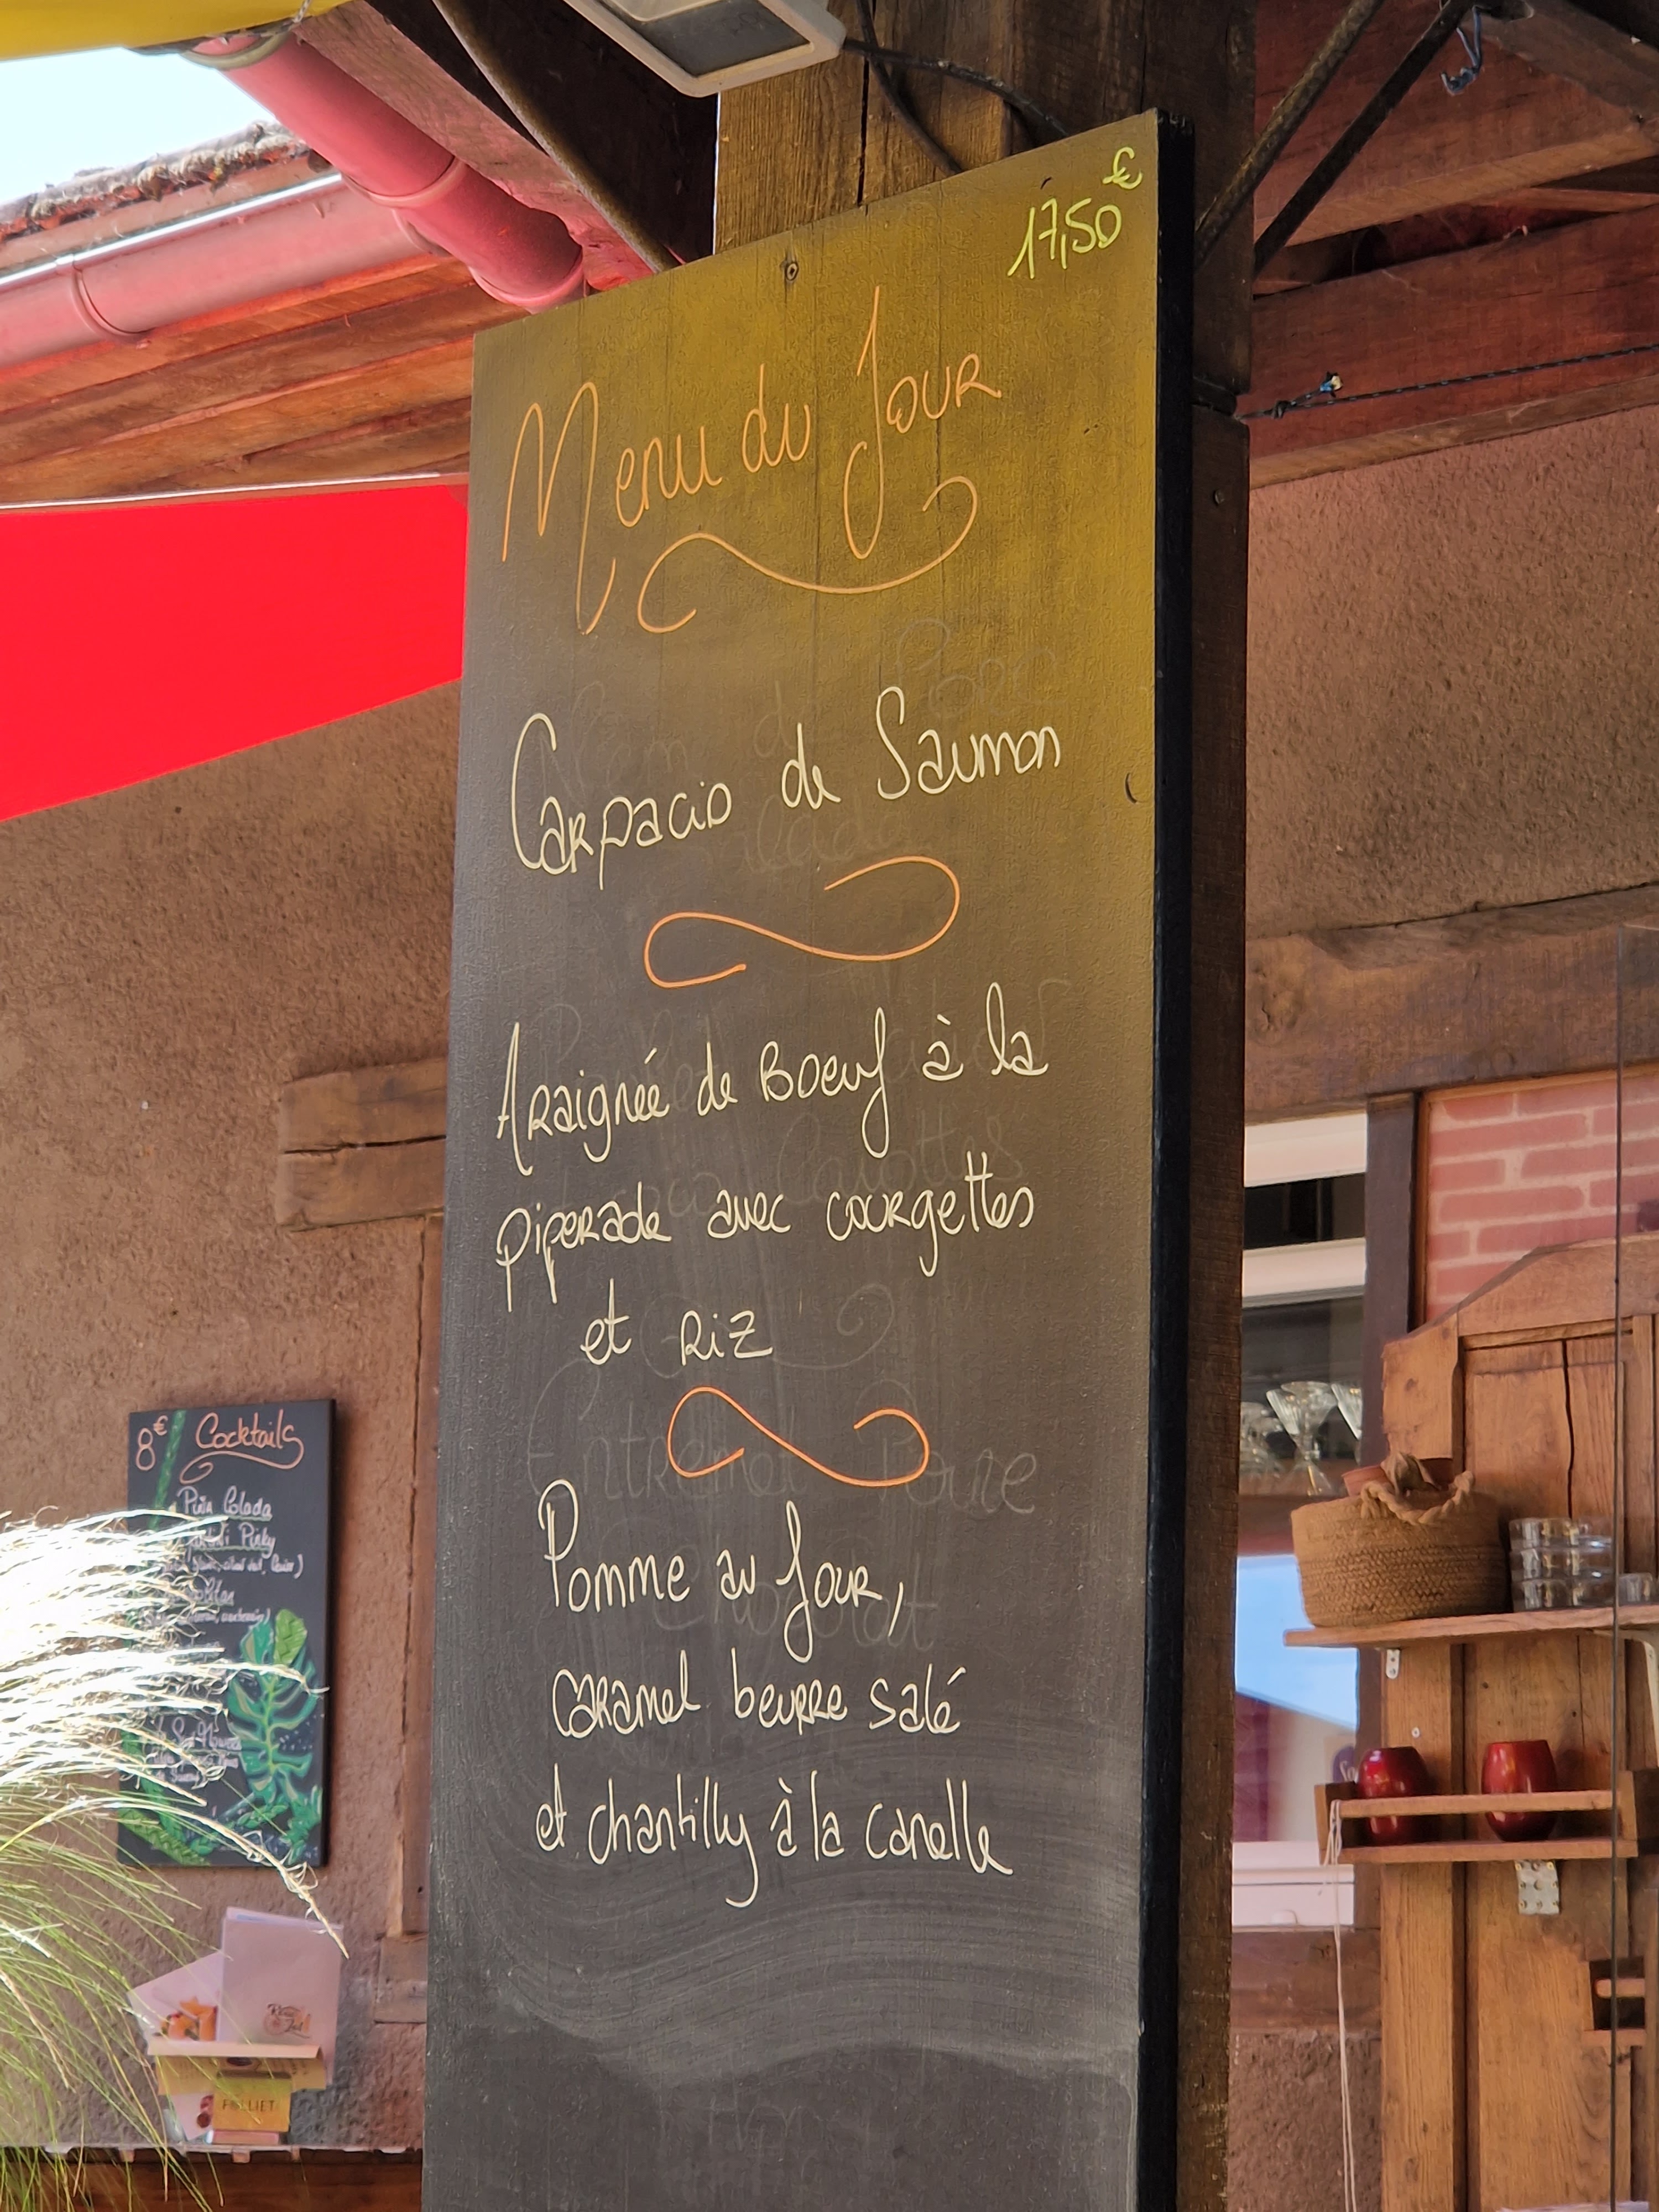 €
17,50
Menu du Jour
Carpacio de Saumon
Araignée de Boeuf à la
piperade avec courgettes
et Riz
Pomme au four,
caramel beurre salé
et chantilly à la canelle
8€ Cocktails
Piña Colada
Pinky
FOLLIET